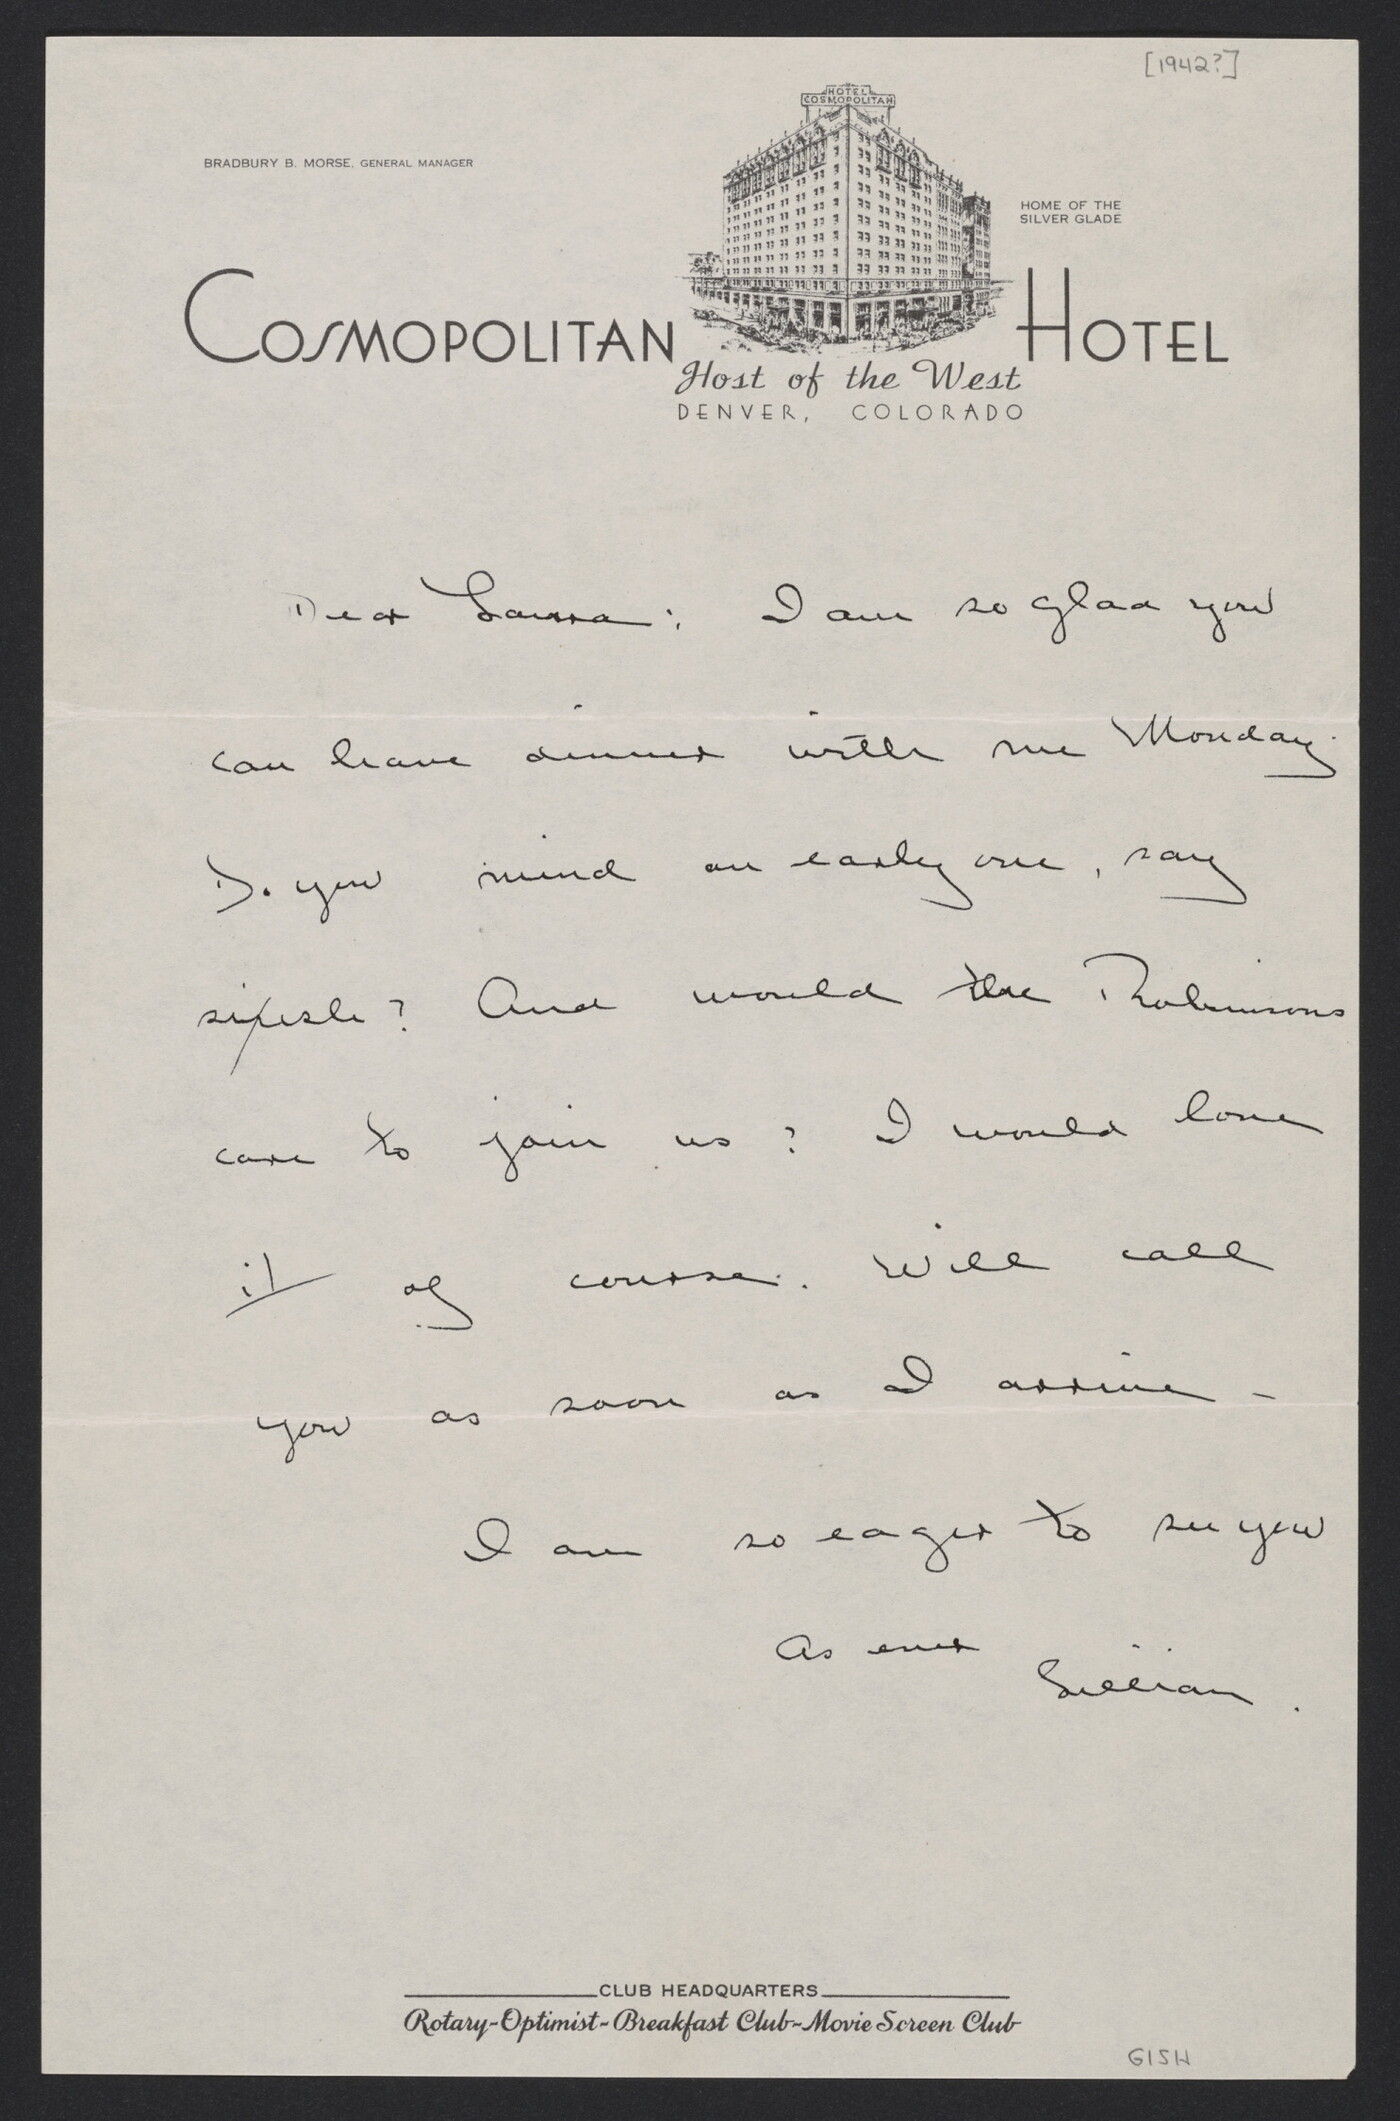 [1942?]
HOTEL
COSMOPOLITAN
BRADBURY B. MORSE, GENERAL MANAGER
HOME OF THE
SILVER GLADE
COSMOPOLITAN HOTEL
Host of the West
DENVER, COLORADO
Dear Laura: I am so glad you
can have dinner with me Monday.
Do you mind an early one, say
sixish? And would the Robinsons
care to join us? I would love
it of course. Will call
you as soon as I arrive -
I am so eager to see you
As ever
Lillian.
CLUB HEADQUARTERS
Rotary-Optimist-Breakfast Club-Movie Screen Club
GISH